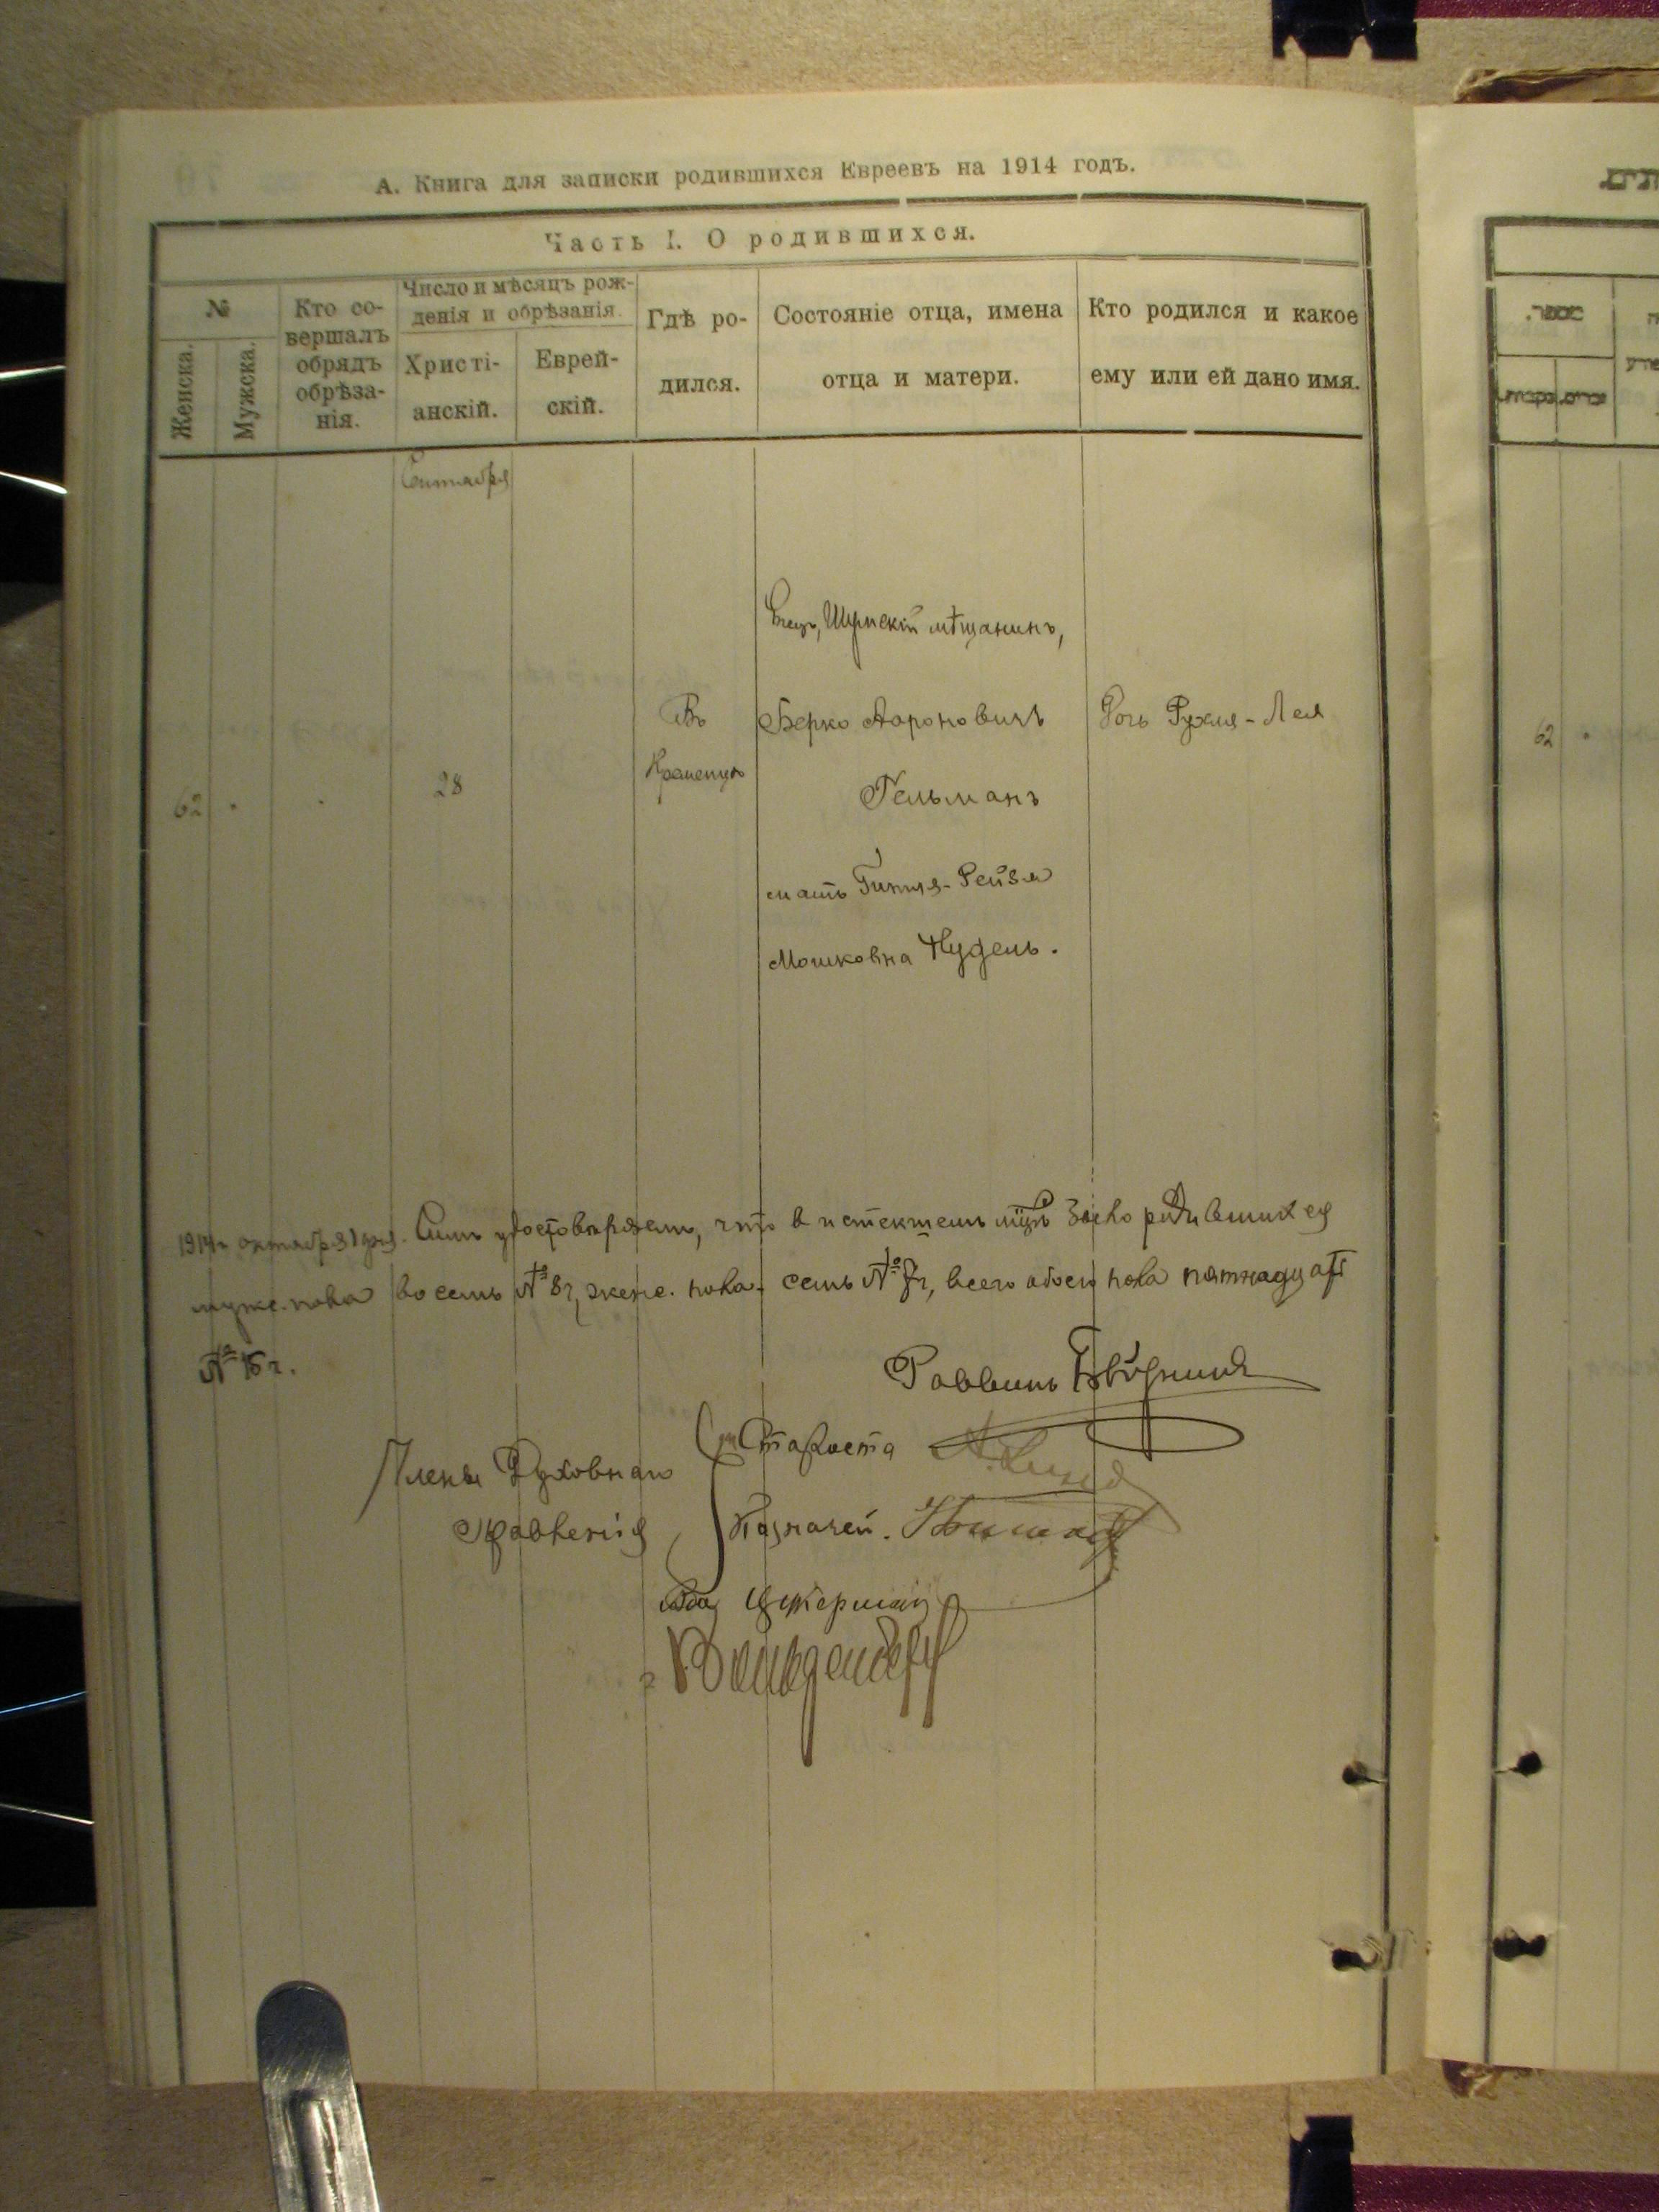 А. Книга для записки родившихся Евреевъ на 1914 годъ.
Часть I. О родившихся.
№
Женска.
Мужска.
Кто со-
вершалъ
обрядъ
обрѣза-
нія.
Число и мѣсяцъ рож-
денія и обрѣзанія.
Христі-
анскій.
Еврей-
скій.
Гдѣ ро-
дился.
Состояніе отца, имена
отца и матери.
Кто родился и какое
ему или ей дано имя.
Сентября
62
28
Въ
Кременцѣ
Отецъ, Шумскій мѣщанинъ,
Берко Ароновичъ
Гельманъ
мать Гитля-Рейзя
Мошковна Нудель.
Дочь Рухля-Лея
62
1914 г. октября 1 дня. Симъ удостовѣряемъ, что в истекшемъ мѣсяцѣ было родившихся
муже. пола восемь № 8 г, женс. пола семь № 7 г, всего обоего пола пятнадцать
№ 15 г.
Раввинъ
Члены Духовнаго
Правленія
Староста
Казначей.
Цукерманъ